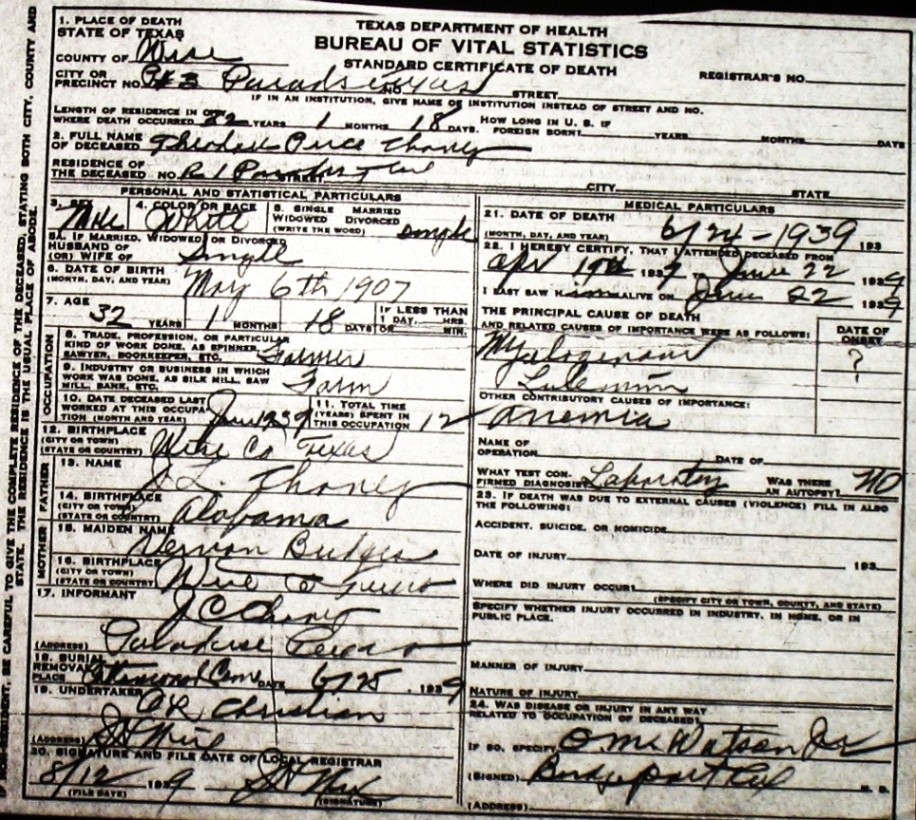 TEXAS DEPARTMENT OF HEALTH
BUREAU OF VITAL STATISTICS
STANDARD CERTIFICATE OF DEATH
1. PLACE OF DEATH
STATE OF TEXAS
COUNTY OF Wise
REGISTRAR'S NO.
CITY OR PRECINCT NO. #3 STREET
IF IN AN INSTITUTION, GIVE NAME OF INSTITUTION INSTEAD OF STREET AND NO.
LENGTH OF RESIDENCE IN CITY WHERE DEATH OCCURRED 32 YEARS 1 MONTHS 18 DAYS. HOW LONG IN U. S. IF FOREIGN BORN? YEARS MONTHS DAYS
2. FULL NAME OF DECEASED Price Chaney
RESIDENCE OF THE DECEASED NO. R 1 CITY STATE
PERSONAL AND STATISTICAL PARTICULARS
3. SEX Male 4. COLOR OR RACE White 5. SINGLE MARRIED WIDOWED DIVORCED (WRITE THE WORD) single
5A. IF MARRIED, WIDOWED, OR DIVORCED HUSBAND OF (OR) WIFE OF Single
6. DATE OF BIRTH (MONTH, DAY, AND YEAR) May 6th 1907
7. AGE 32 YEARS 1 MONTHS 18 DAYS IF LESS THAN 1 DAY, HRS. OR MIN.
OCCUPATION
8. TRADE, PROFESSION, OR PARTICULAR KIND OF WORK DONE, AS SPINNER, SAWYER, BOOKKEEPER, ETC. Farmer
9. INDUSTRY OR BUSINESS IN WHICH WORK WAS DONE, AS SILK MILL, SAW MILL, BANK, ETC. Farm
10. DATE DECEASED LAST WORKED AT THIS OCCUPATION (MONTH AND YEAR) 1939 11. TOTAL TIME (YEARS) SPENT IN THIS OCCUPATION 12
12. BIRTHPLACE (CITY OR TOWN) (STATE OR COUNTRY) Wise Co Texas
FATHER
13. NAME J. L. Chaney
14. BIRTHPLACE (CITY OR TOWN) (STATE OR COUNTRY) Alabama
MOTHER
15. MAIDEN NAME Vernon Bridges
16. BIRTHPLACE (CITY OR TOWN) (STATE OR COUNTRY) Wise Co
17. INFORMANT J C Chaney
(ADDRESS) Paradise
18. BURIAL REMOVAL PLACE Cottonwood Cem DATE 6/25 1939
19. UNDERTAKER Christian
(ADDRESS)
20. SIGNATURE AND FILE DATE OF LOCAL REGISTRAR
8/12 1939
(FILE DATE) (SIGNATURE)
MEDICAL PARTICULARS
21. DATE OF DEATH (MONTH, DAY, AND YEAR) 6/24-1939 193
22. I HEREBY CERTIFY, THAT I ATTENDED DECEASED FROM
Apr 1939 June 22 1939
I LAST SAW Him ALIVE ON June 22 1939
THE PRINCIPAL CAUSE OF DEATH AND RELATED CAUSES OF IMPORTANCE WERE AS FOLLOWS: DATE OF ONSET
?
OTHER CONTRIBUTORY CAUSES OF IMPORTANCE:
Anemia
NAME OF OPERATION DATE OF
WHAT TEST CONFIRMED DIAGNOSIS Laboratory WAS THERE AN AUTOPSY? NO
23. IF DEATH WAS DUE TO EXTERNAL CAUSES (VIOLENCE) FILL IN ALSO THE FOLLOWING:
ACCIDENT, SUICIDE, OR HOMICIDE
DATE OF INJURY 193
WHERE DID INJURY OCCUR?
(SPECIFY CITY OR TOWN, COUNTY, AND STATE)
SPECIFY WHETHER INJURY OCCURRED IN INDUSTRY, IN HOME, OR IN PUBLIC PLACE.
MANNER OF INJURY
NATURE OF INJURY
24. WAS DISEASE OR INJURY IN ANY WAY RELATED TO OCCUPATION OF DECEASED?
IF SO, SPECIFY
(SIGNED) O. M. Watson Jr M. D.
(ADDRESS) Bridgeport
BE CAREFUL TO GIVE THE COMPLETE RESIDENCE OF THE DECEASED, STATING BOTH CITY, COUNTY AND
STATE. THE RESIDENCE IS THE USUAL PLACE OF ABODE.